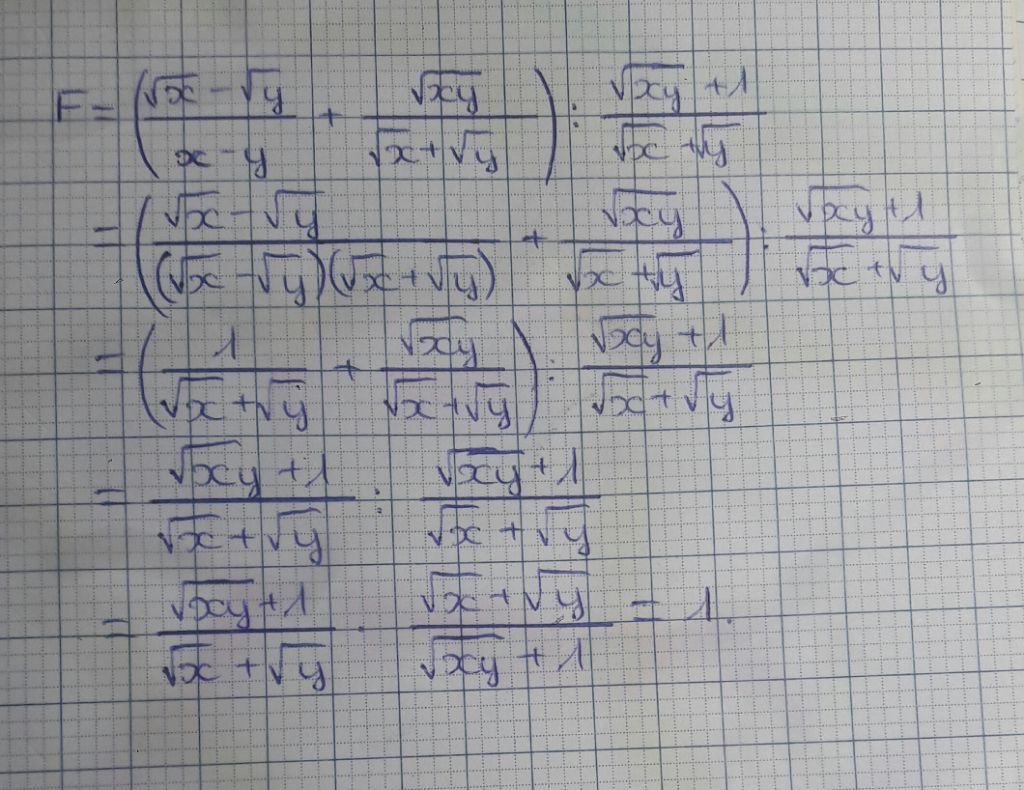 F = ( (√x - √y)/(x - y) + √(xy)/(√x + √y) ) : (√(xy) + 1)/(√x + √y)
= ( (√x - √y)/((√x - √y)(√x + √y)) + √(xy)/(√x + √y) ) : (√(xy) + 1)/(√x + √y)
= ( 1/(√x + √y) + √(xy)/(√x + √y) ) : (√(xy) + 1)/(√x + √y)
= (√(xy) + 1)/(√x + √y) : (√(xy) + 1)/(√x + √y)
= (√(xy) + 1)/(√x + √y) · (√x + √y)/(√(xy) + 1) = 1.